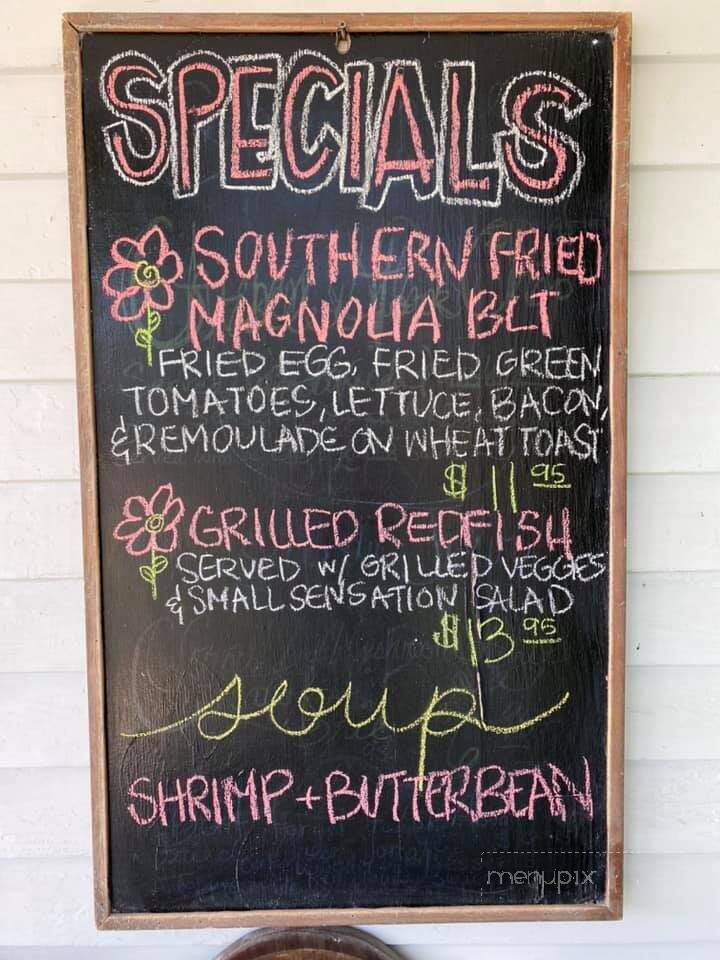 SPECIALS
SOUTHERN FRIED
MAGNOLIA BLT
FRIED EGG, FRIED GREEN
TOMATOES, LETTUCE, BACON,
& REMOULADE ON WHEAT TOAST
$11 95
GRILLED REDFISH
SERVED W/ GRILLED VEGGIES
& SMALL SENSATION SALAD
$13 95
soup
SHRIMP + BUTTERBEAN
menupix